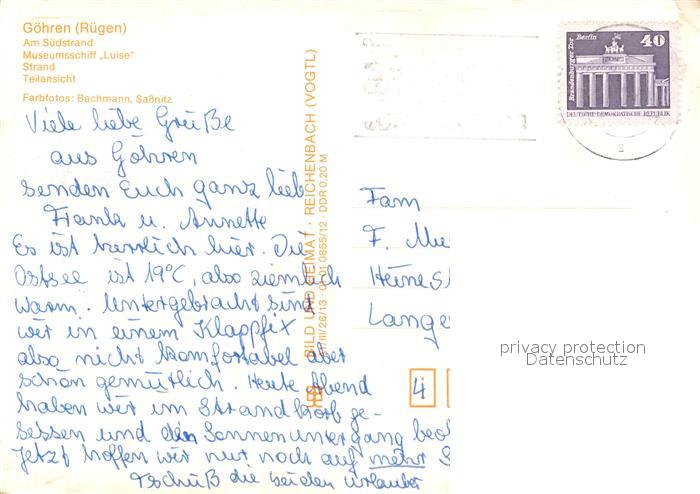 Göhren (Rügen)
Am Südstrand
Museumsschiff „Luise"
Strand
Teilansicht
Farbfotos: Bachmann, Saßnitz
Viele liebe Grüße
aus Göhren
senden Euch ganz lieb
Frank u. Annette
Es ist herrlich hier. Die
Ostsee ist 19°C, also ziemlich
warm. Untergebracht sind
wir in einem Klappfix
also nicht komfortabel aber
schön gemütlich. Heute Abend
haben wir im Strandkorb ge-
sessen und den Sonnenuntergang beo
Jetzt hoffen wir nur noch auf mehr S
Tschüß die beiden Urlauber
BILD UND HEIMAT · REICHENBACH (VOGTL)
III/26/13 · 01 01 0855/12 · DDR 0,20 M
Brandenburger Tor Berlin
40
DEUTSCHE DEMOKRATISCHE REPUBLIK
Fam
F. Mu
Heines
Lange
4
privacy protection
Datenschutz